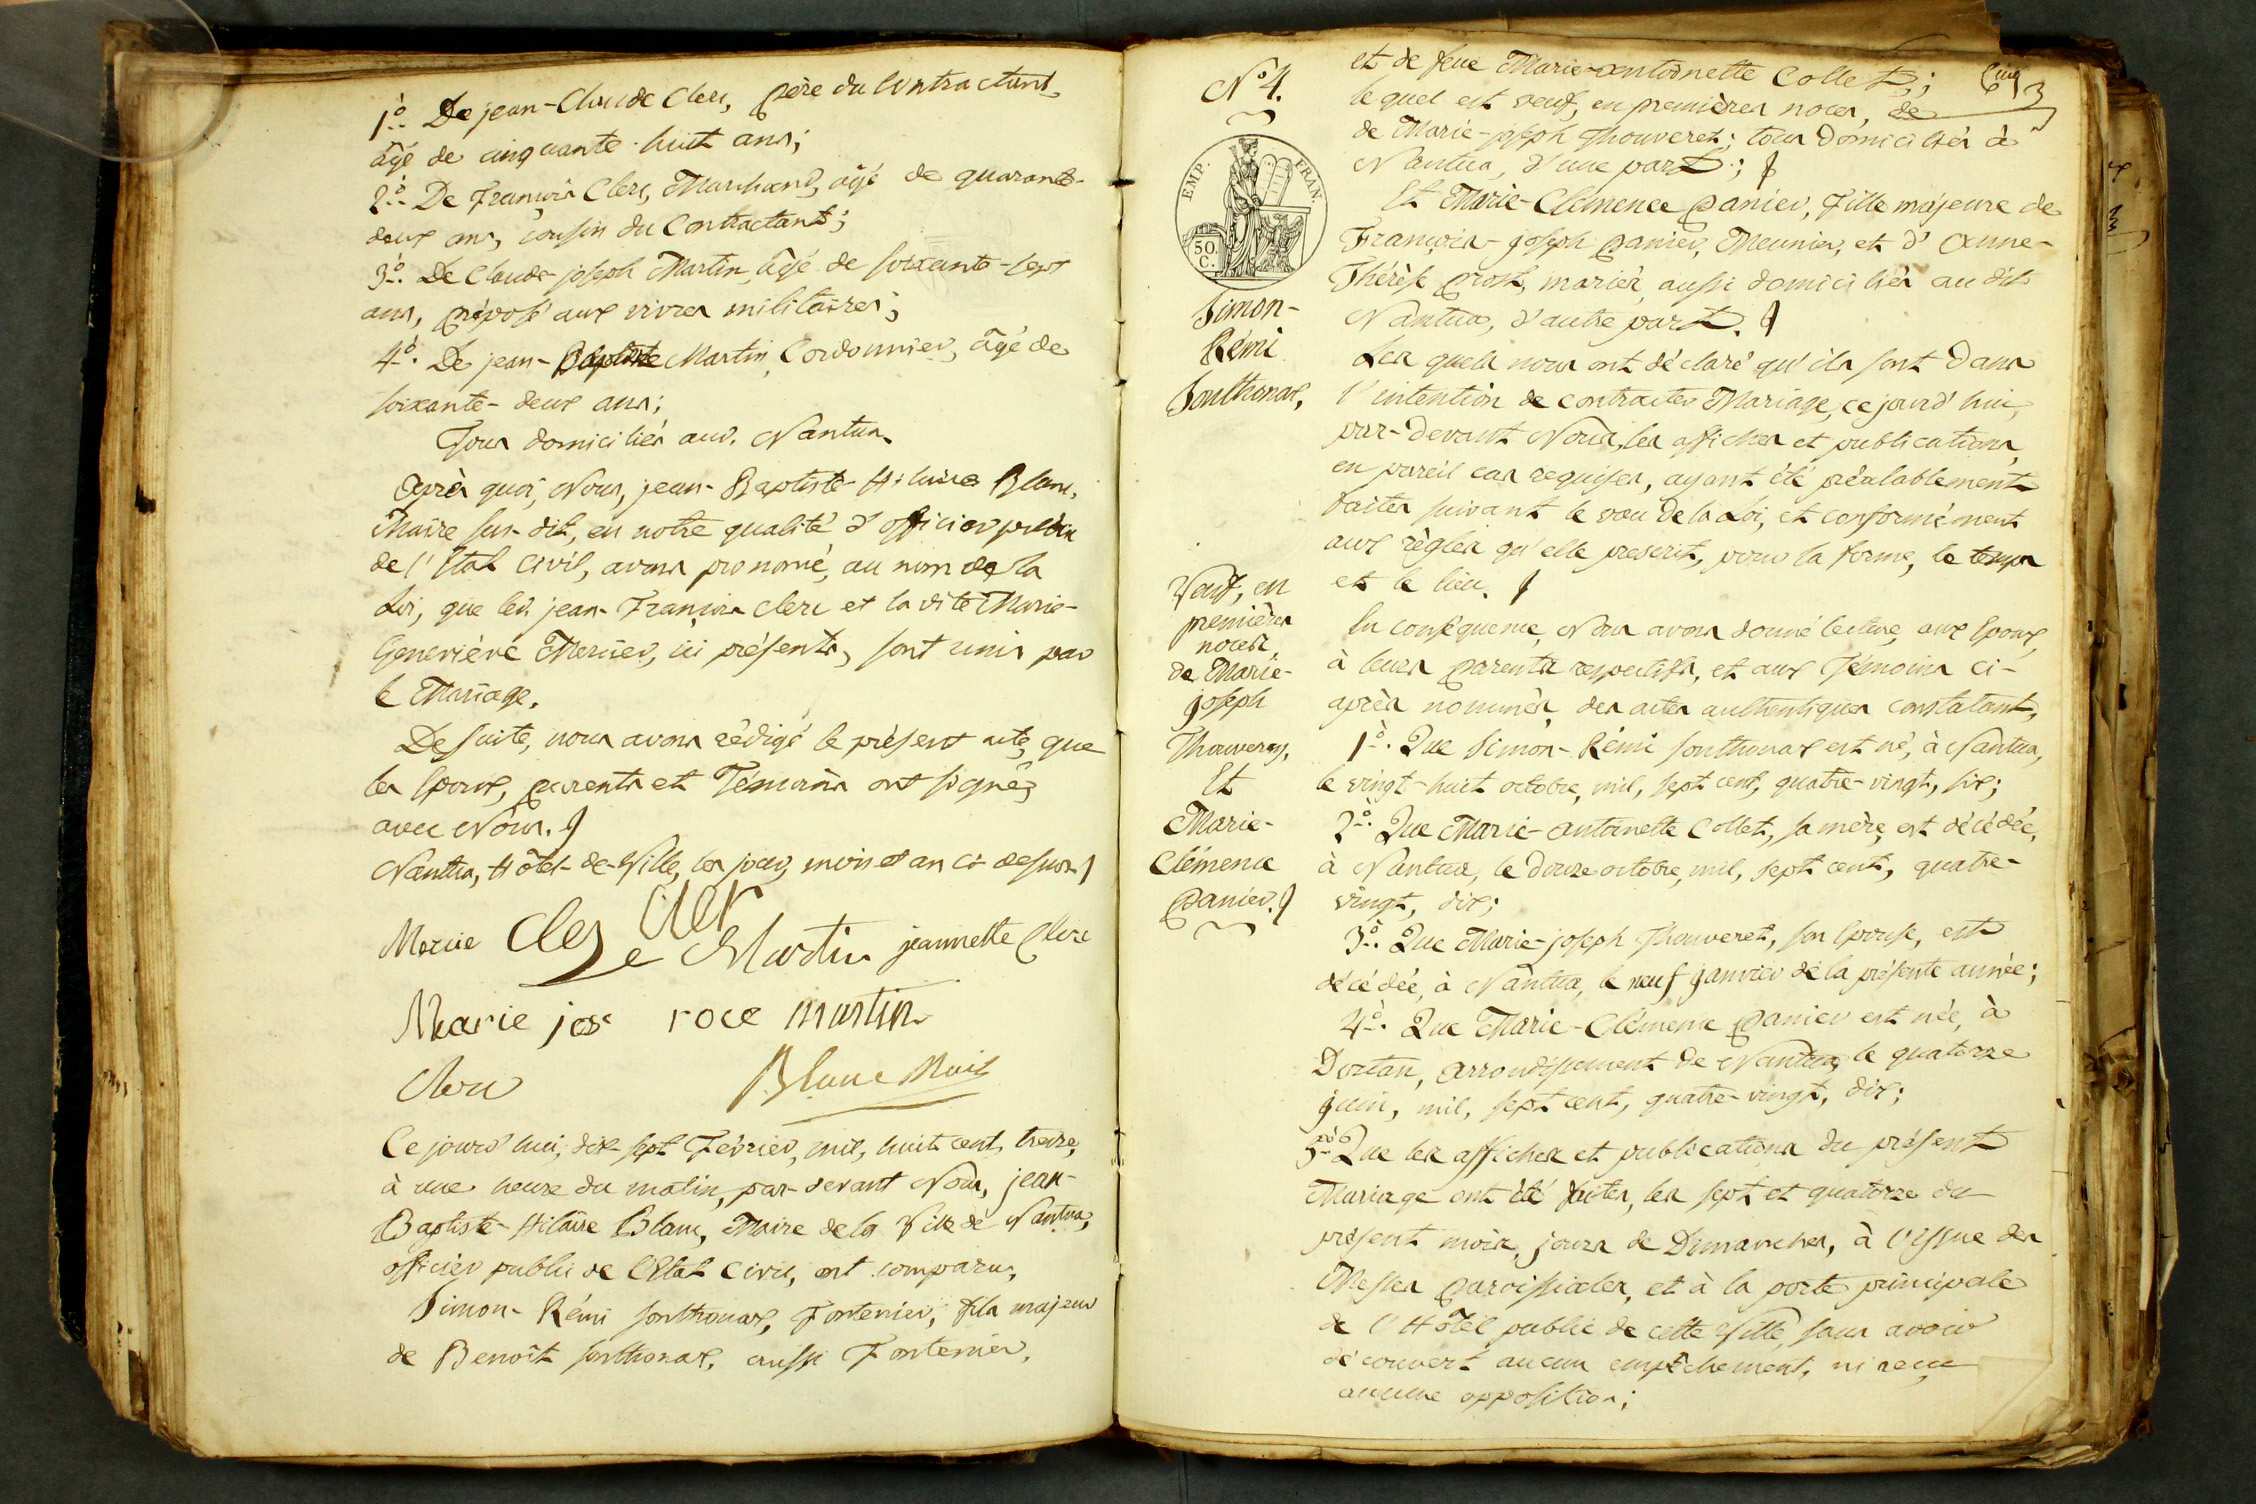 1.° De jean-Claude Clerc, père du Contractant,
âgé de cinquante-huit ans;
2.° De François Clerc, Marchand, âgé de quarante-
deux ans, cousin du Contractant;
3.° De Claude-joseph Martin, âgé de soixante-sept
ans, préposé aux vivres militaires;
4.° De jean-Baptiste Martin, Cordonnier, âgé de
soixante-deux ans;
Tous domiciliés aud. Nantua.
Après quoi, Nous, jean-Baptiste-Hilaire Blanc,
Maire sus-dit, en notre qualité d'officier public
de l'Etat Civil, avons prononcé, au nom de la
Loi, que led. jean-François Clerc et la dite Marie-
Geneviève Mercier, ici présents, sont unis par
le Mariage.
De suite, nous avons rédigé le présent acte, que
les Epoux, parents et Témoins ont signé
avec Nous.
Nantua, Hôtel-de-Ville, les jour, mois et an ci-dessus.
Mercie Clerc Cler
Martin jeannette Clerc
Marie jos roce martin
Clerc Blanc Maire
Ce jourd'hui, dix-sept Février, mil, huit cent, treize,
à une heure du matin, par-devant Nous, jean-
Baptiste-Hilaire Blanc, Maire de la Ville de Nantua,
officier public de l'Etat Civil, ont comparu,
Simon-Rémi Sonthonax, Fontenier, fils majeur
de Benoît Sonthonax, aussi Fontenier,
N.° 4.
EMP. FRAN.
50 C.
Simon-
Rémi
Sonthonax,
Veuf, en
premières
noces,
de Marie-
joseph
Thouveret,
Et
Marie-
Clémence
Panier.
Cinq 3
et de feue Marie-antoinette Collet;
lequel est veuf, en premières noces, de
de Marie-joseph Thouveret; tous domiciliés à
Nantua, d'une part;
Et Marie-Clémence Panier, Fille majeure de
François-joseph Panier, Meunier, et d'Anne-
Thérèse Prost, mariés, aussi domiciliés au dit
Nantua, d'autre part.
Les quels nous ont déclaré qu'ils sont dans
l'intention de contracter Mariage, ce jourd'hui,
par-devant Nous, les affiches et publications,
en pareil cas requises, ayant été préalablement
faites suivant le vœu de la Loi, et conformément
aux règles qu'elle prescrit, pour la forme, le temps
et le lieu.
En conséquence, Nous avons donné lecture, aux Epoux,
à leurs parents respectifs, et aux Témoins ci-
après nommés, des actes authentiques constatant,
1.° Que Simon-Rémi Sonthonax est né, à Nantua,
le vingt-huit octobre, mil, sept cent, quatre-vingt, six;
2.° Que Marie-antoinette Collet, sa mère, est décédée,
à Nantua, le douze octobre, mil, sept cent, quatre-
vingt, dix;
3.° Que Marie-joseph Thouveret, son Epouse, est
décédée, à Nantua, le neuf janvier de la présente année;
4.° Que Marie-Clémence Panier est née, à
Dortan, arrondissement de Nantua, le quatorze
juin, mil, sept cent, quatre-vingt, dix;
5.° Que les affiches et publications du présent
Mariage ont été faites, les sept et quatorze du
présent mois, jours de Dimanches, à l'issue des
Messes paroissiales, et à la porte principale
de l'Hôtel public de cette Ville, sans avoir
découvert aucun empêchement, ni reçu
aucune opposition;